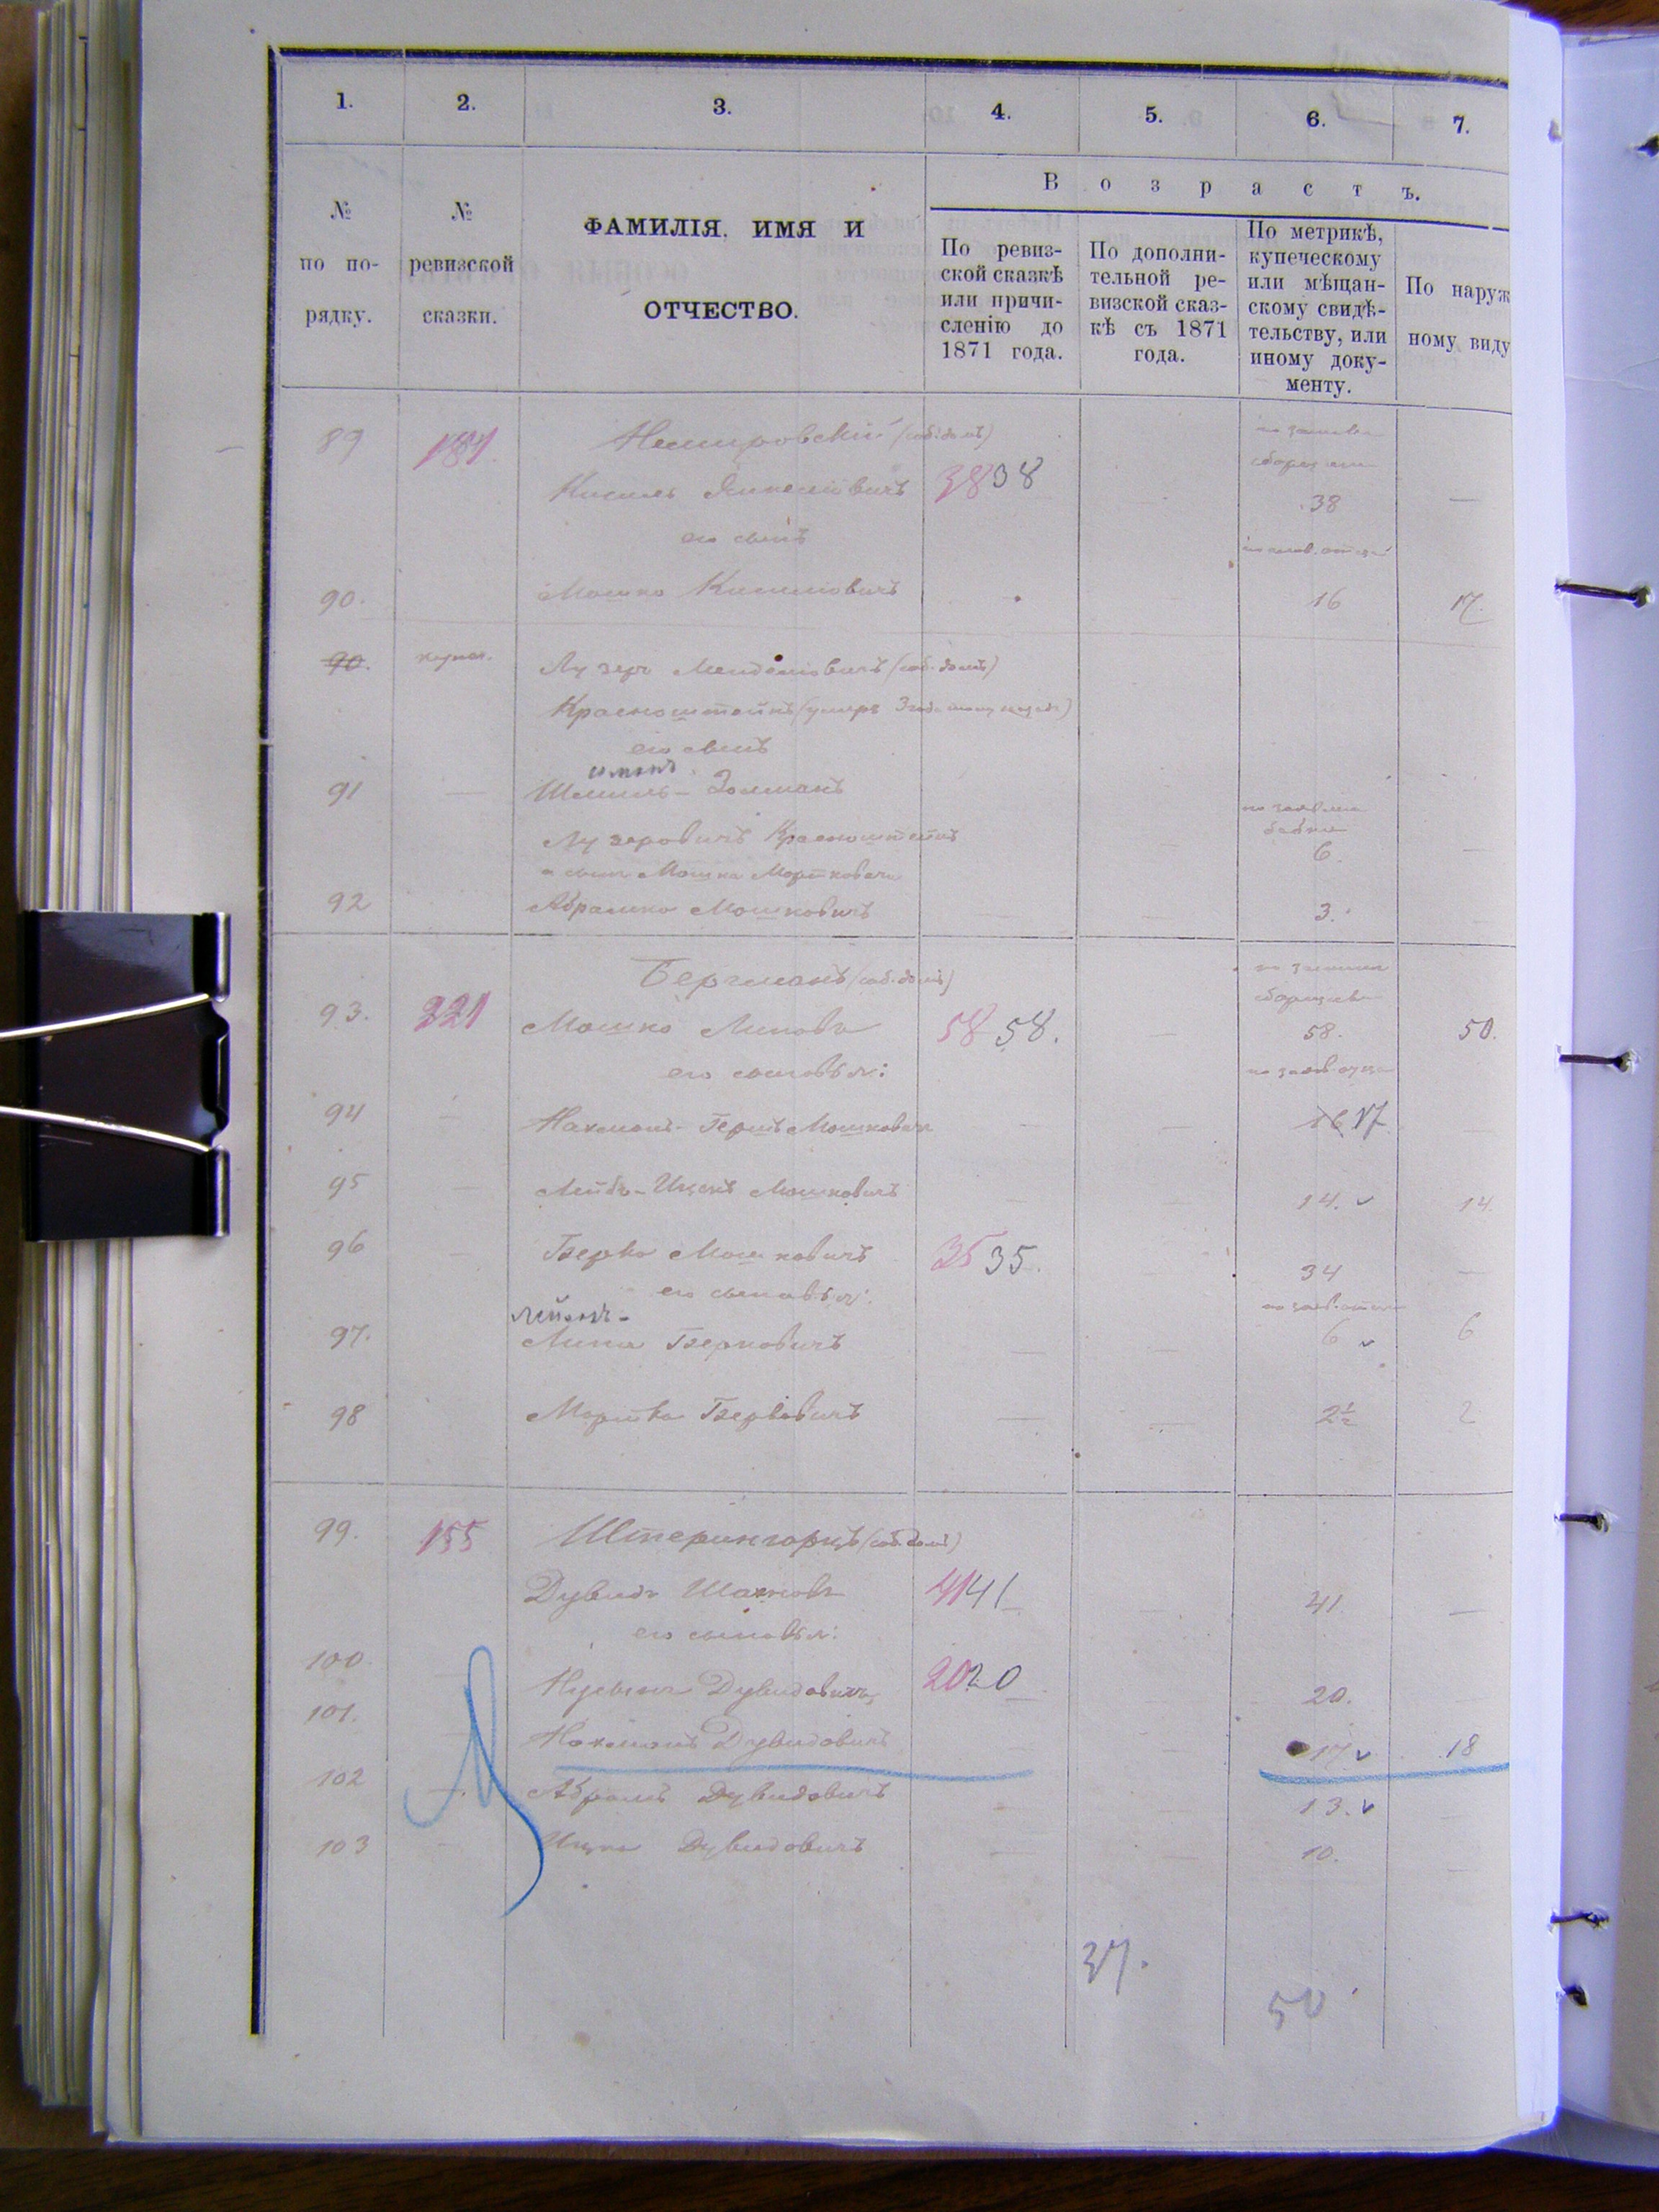 1. 2. 3. 4. 5. 6. 7.
В о з р а с т ъ.
№ по по-рядку.
№ ревизской сказки.
ФАМИЛІЯ. ИМЯ И
ОТЧЕСТВО.
По ревиз-
ской сказкѣ
или причи-
сленію до
1871 года.
По дополни-
тельной ре-
визской сказ-
кѣ съ 1871
года.
По метрикѣ,
купеческому
или мѣщан-
скому свидѣ-
тельству, или
иному доку-
менту.
По наруж
ному виду
89 184. Немировскій (соб. домъ)
Кисиль 38 38 38 —
его сынъ
90. Мошко Кисилевичъ 16 17.
90. Лузеръ Менделіовичъ (соб. домъ)
Красноштейнъ (умеръ
его сынъ
91 — Шмиль-Золманъ
Лузеровичъ Красноштейнъ 6.
и сынъ Мошка Мортковича
92 Абрамко Мошковичъ 3.
Бергманъ (соб. домъ)
93. 221 Мошко Липовъ 58 58. — 58. 50.
его сыновья:
94 — Нахманъ-Гершъ Мошкович — — 16 17
95 — Лейбъ-Ицекъ Мошковичъ — 14. 14.
96 — Берко Мошковичъ 35 35. — 34 —
его сыновья:
97. Липа Берковичъ — — 6 6
98 Мортко Берковичъ — — 2½ 2
99. 155 Штернгорцъ (соб. домъ)
Дувидъ Шахновъ 41 41 — 41 —
его сыновья:
100. — Дувидовичъ 20 20 20.
101. Нахманъ Дувидовичъ — 17 18
102 — Абрамъ Дувидовичъ — — 13. —
103 — Ицко Дувидовичъ — — 10. —
37.
50